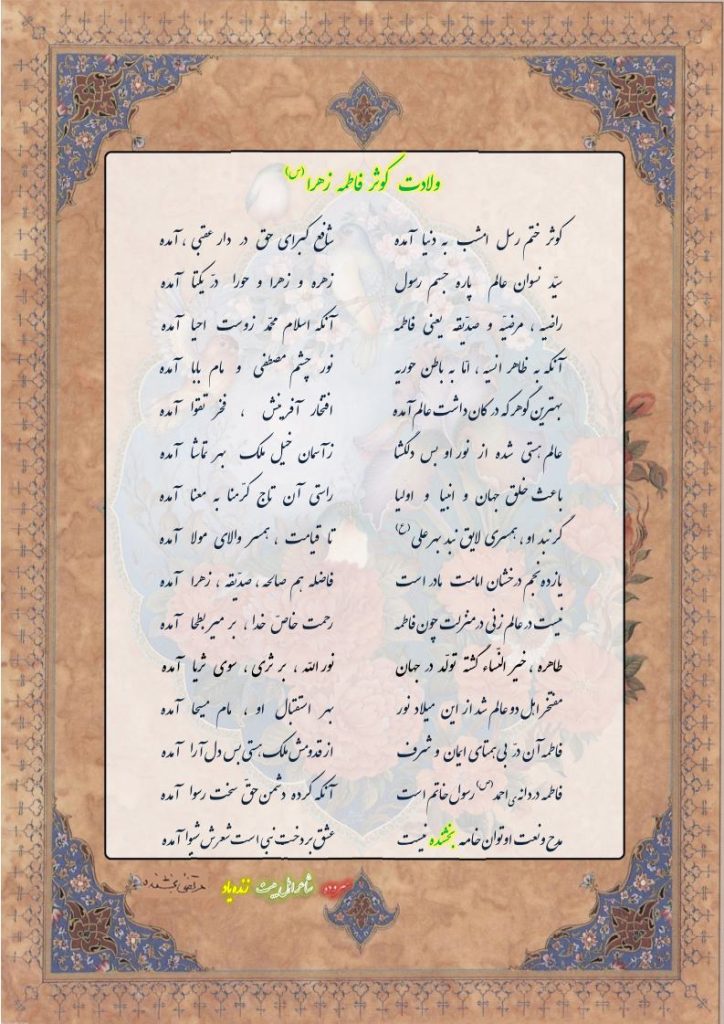 ولادت کوثر فاطمه زهرا (س)
کوثر ختم رسل امشب به دنیا آمده شافع کبرای حق در دار عقبی ، آمده
سیّد نسوان عالم پاره جسم رسول زهره و زهرا و حورا درّ یکتا آمده
راضیه ، مرضیّه و صدّیقه یعنی فاطمه آنکه اسلام محمّد زوست احیا آمده
آنکه به ظاهر انسیه ، امّا به باطن حوریه نور چشم مصطفی و مام بابا آمده
بهترین گوهر که در کان داشت عالم آمده افتخار آفرینش ، فخر تقوا آمده
عالم هستی شده از نور او بس دلگشا زآسمان خیل ملک بهر تماشا آمده
باعث خلق جهان و انبیا و اولیا راستی آن تاج کرّمنا به معنا آمده
گر نبد او ، همسری لایق نبد بهر علی (ع) تا قیامت ، همسر والای مولا آمده
یازده نجم درخشان امامت مادر است فاضله هم صالحه ، صدّیقه ، زهرا آمده
نیست در عالم زنی در منزلت چون فاطمه رحمت خاصّ خدا ، بر میر بطحا آمده
طاهره ، خیر النّساء گشته تولّد در جهان نور الله ، بر ثری ، سوی ثریا آمده
مفتخر اهل دو عالم شد از این میلاد نور بهر استقبال او ، مام مسیحا آمده
فاطمه آن درّ بی همتای ایمان و شرف از قدومش ملک هستی بس دل آرا آمده
فاطمه دردانه ی احمد (ص) رسول خاتم است آنکه کرده دشمن حقّ سخت رسوا آمده
مدح و نعت او توان خامه بخشنده نیست عشق بر دخت نبی است شعرش شیوا آمده
سروده شاعر اهل بیت زنده یاد مرتضی بخشنده